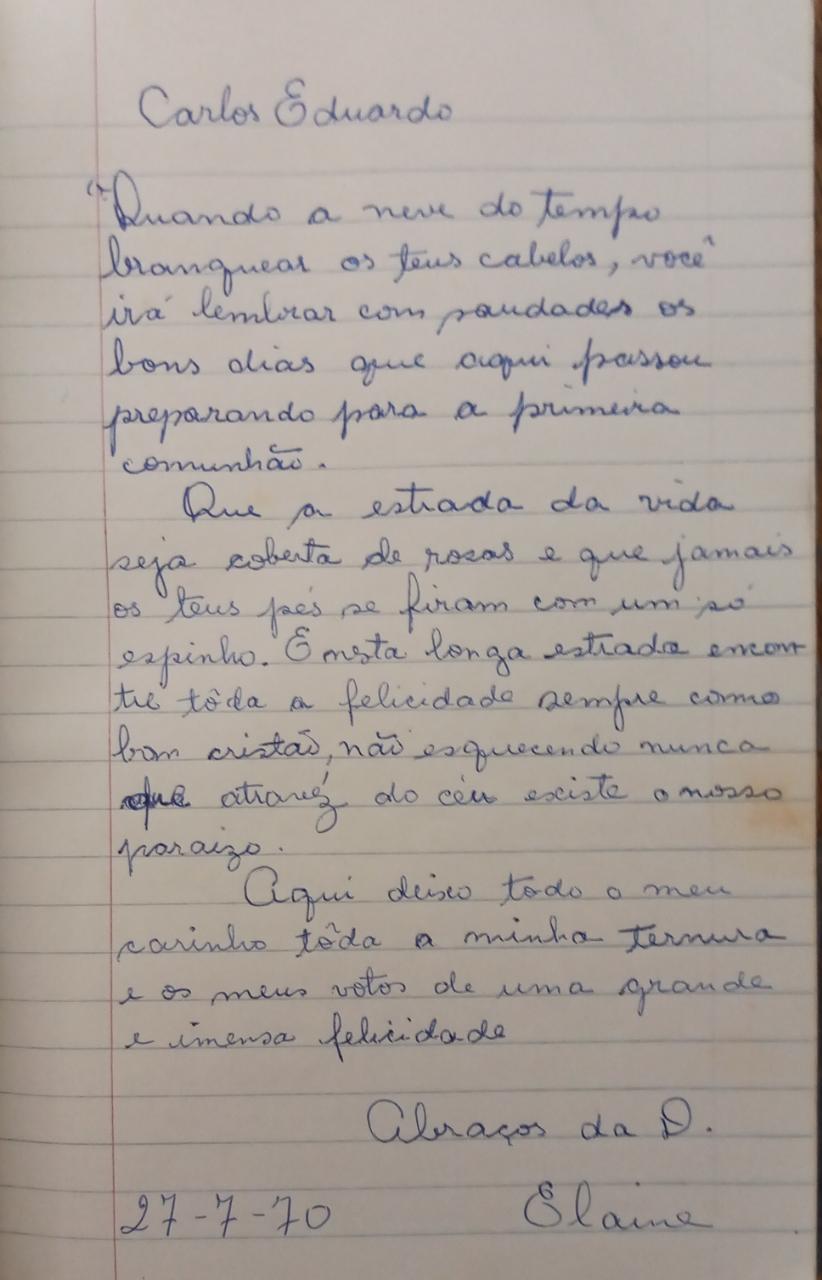 Carlos Eduardo
"Quando a neve do tempo
branquear os teus cabelos, você
irá lembrar com saudades os
bons dias que aqui passou
preparando para a primeira
comunhão.
Que a estrada da vida
seja coberta de rosas e que jamais
os teus pés se firam com um só
espinho. E nesta longa estrada encon-
tre tôda a felicidade sempre como
bom cristão, não esquecendo nunca
que atravéz do céu existe o nosso
paraizo.
Aqui deixo todo o meu
carinho tôda a minha ternura
e os meus votos de uma grande
e imensa felicidade
Abraços da D.
27-7-70 Elaine